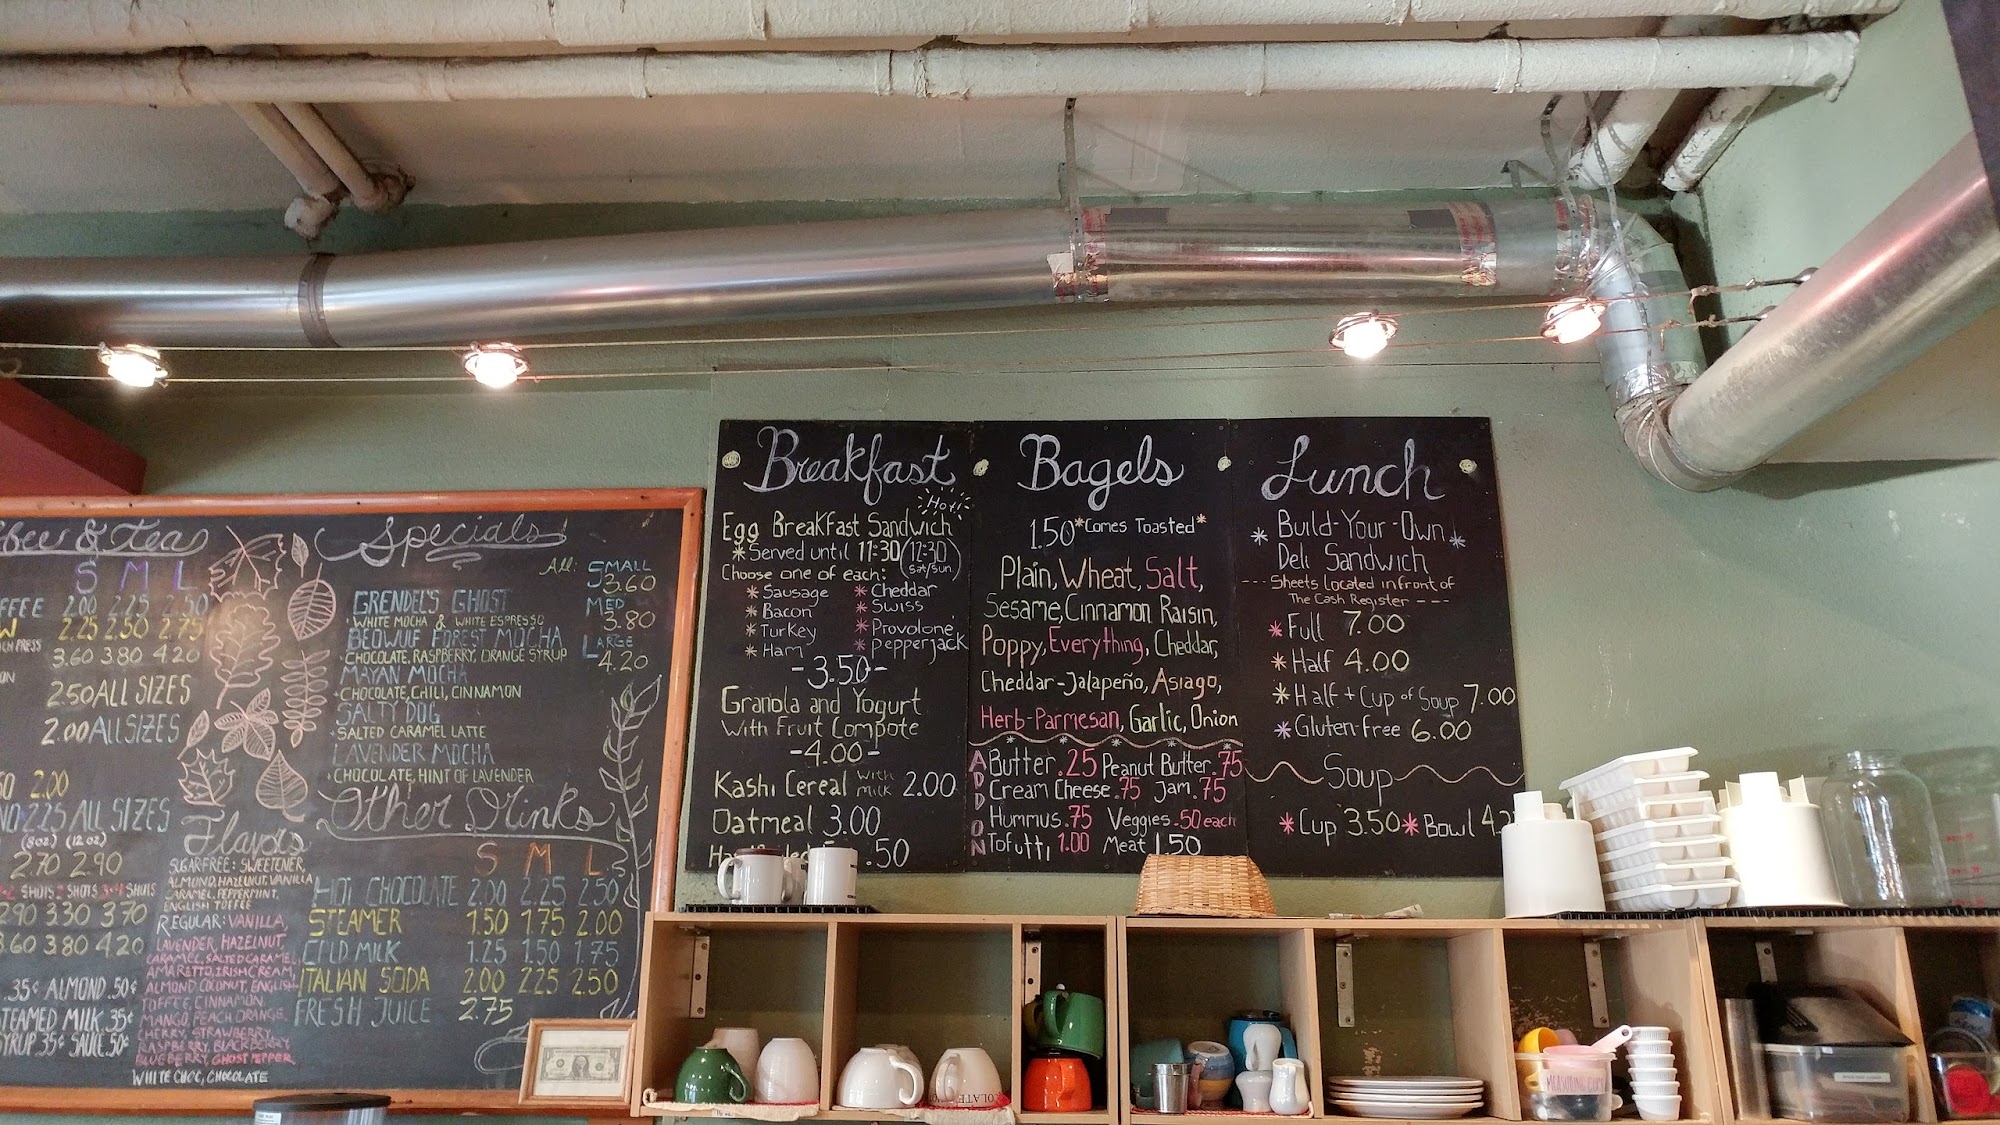 & tea
S M L
2.00 2.25 2.50
2.25 2.50 2.75
3.60 3.80 4.20
2.50 ALL SIZES
2.00 ALL SIZES
2.00
2.25 ALL SIZES
(8oz) (12oz)
2.70 2.90
2 SHOTS
2.90 3.30 3.70
3.60 3.80 4.20
.35¢ ALMOND .50¢
STEAMED MILK .35¢
SYRUP .35¢ SAUCE .50¢
Flavors
SUGARFREE: SWEETENER,
ALMOND, HAZELNUT, VANILLA
CARAMEL, PEPPERMINT,
ENGLISH TOFFEE
REGULAR: VANILLA,
LAVENDER, HAZELNUT,
CARAMEL, SALTED CARAMEL,
AMARETTO, IRISH CREAM,
ALMOND, COCONUT, ENGLISH
TOFFEE, CINNAMON
MANGO, PEACH, ORANGE,
CHERRY, STRAWBERRY,
RASPBERRY, BLACKBERRY,
BLUEBERRY, GHOST PEPPER
WHITE CHOC, CHOCOLATE
Specials
All: SMALL
3.60
MED
3.80
LARGE
4.20
GRENDEL'S GHOST
• WHITE MOCHA & WHITE ESPRESSO
BEOWULF FOREST MOCHA
• CHOCOLATE, RASPBERRY, ORANGE SYRUP
MAYAN MOCHA
• CHOCOLATE, CHILI, CINNAMON
SALTY DOG
• SALTED CARAMEL LATTE
LAVENDER MOCHA
• CHOCOLATE, HINT OF LAVENDER
Other Drinks
S M L
HOT CHOCOLATE 2.00 2.25 2.50
STEAMER 1.50 1.75 2.00
COLD MILK 1.25 1.50 1.75
ITALIAN SODA 2.00 2.25 2.50
FRESH JUICE 2.75
Breakfast
Hot!
Egg Breakfast Sandwich
* Served until 11:30 (12:30 Sat/Sun.)
Choose one of each:
* Sausage * Cheddar
* Bacon * Swiss
* Turkey * Provolone
* Ham * Pepperjack
-3.50-
Granola and Yogurt
With Fruit Compote
-4.00-
Kashi Cereal with milk 2.00
Oatmeal 3.00
.50
Bagels
1.50 *Comes Toasted*
Plain, Wheat, Salt,
Sesame, Cinnamon Raisin,
Poppy, Everything, Cheddar,
Cheddar-Jalapeño, Asiago,
Herb-Parmesan, Garlic, Onion
ADD ON
Butter .25 Peanut Butter .75
Cream Cheese .75 Jam .75
Hummus .75 Veggies .50 each
Tofutti 1.00 Meat 1.50
Lunch
* Build-Your-Own *
Deli Sandwich
--- Sheets located in front of
The Cash Register ---
* Full 7.00
* Half 4.00
* Half + Cup of Soup 7.00
* Gluten-Free 6.00
Soup
* Cup 3.50 * Bowl
MEASURING CUPS